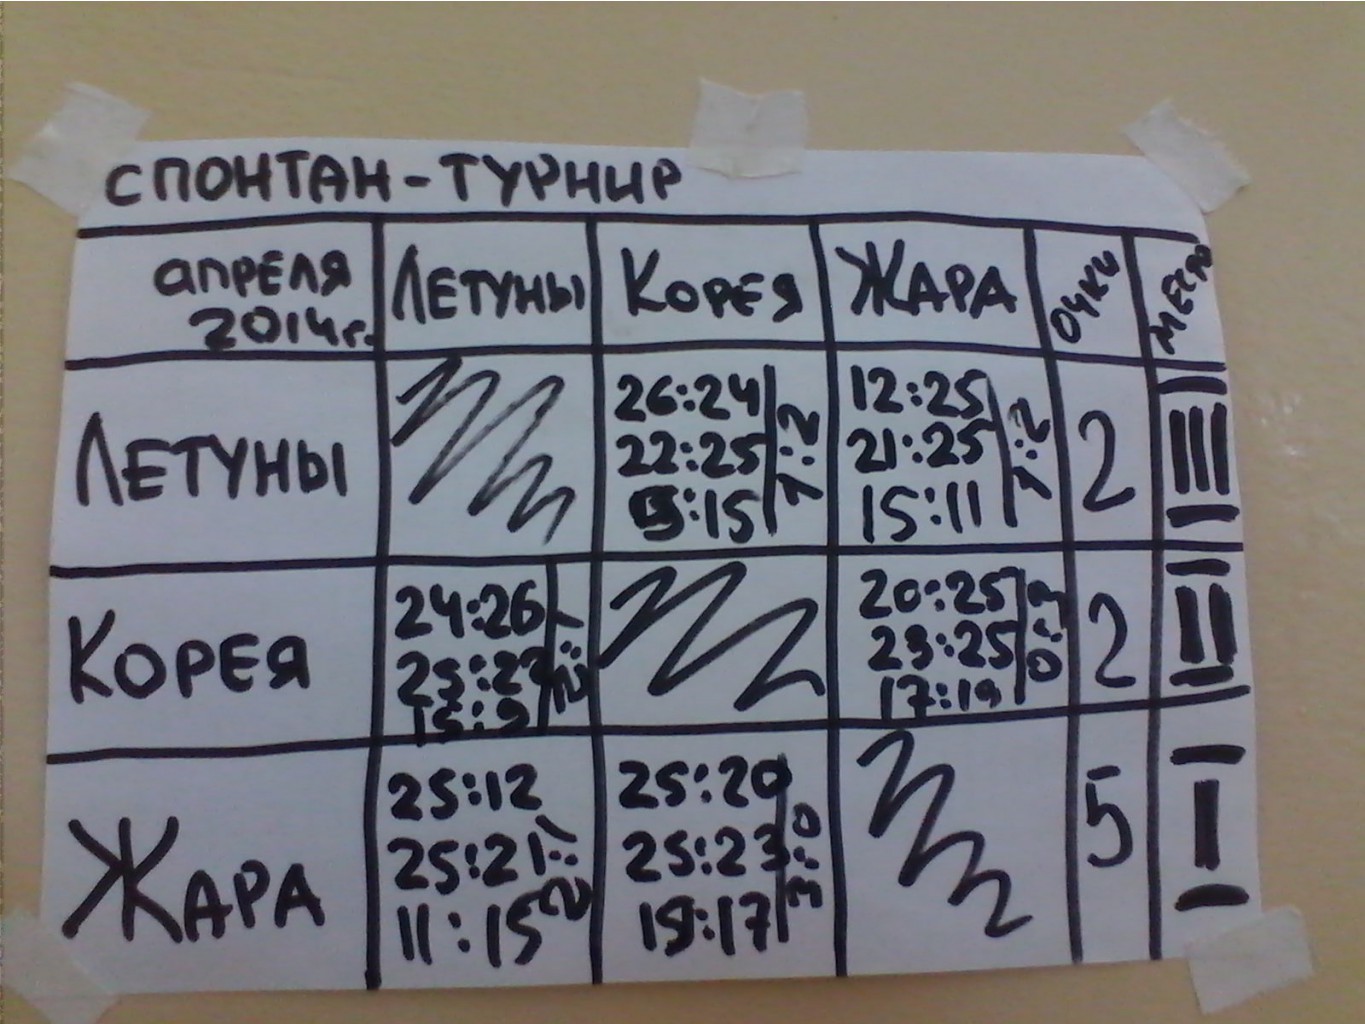 СПОНТАН-ТУРНИР
апреля
2014г.
Летуны
Корея
Жара
очки
место
Летуны
26:24
22:25
9:15
1:2
12:25
21:25
15:11
1:2
2
III
Корея
24:26
25:22
15:9
2:1
20:25
23:25
17:19
0:3
2
II
Жара
25:12
25:21
11:15
2:1
25:20
25:23
19:17
3:0
5
I